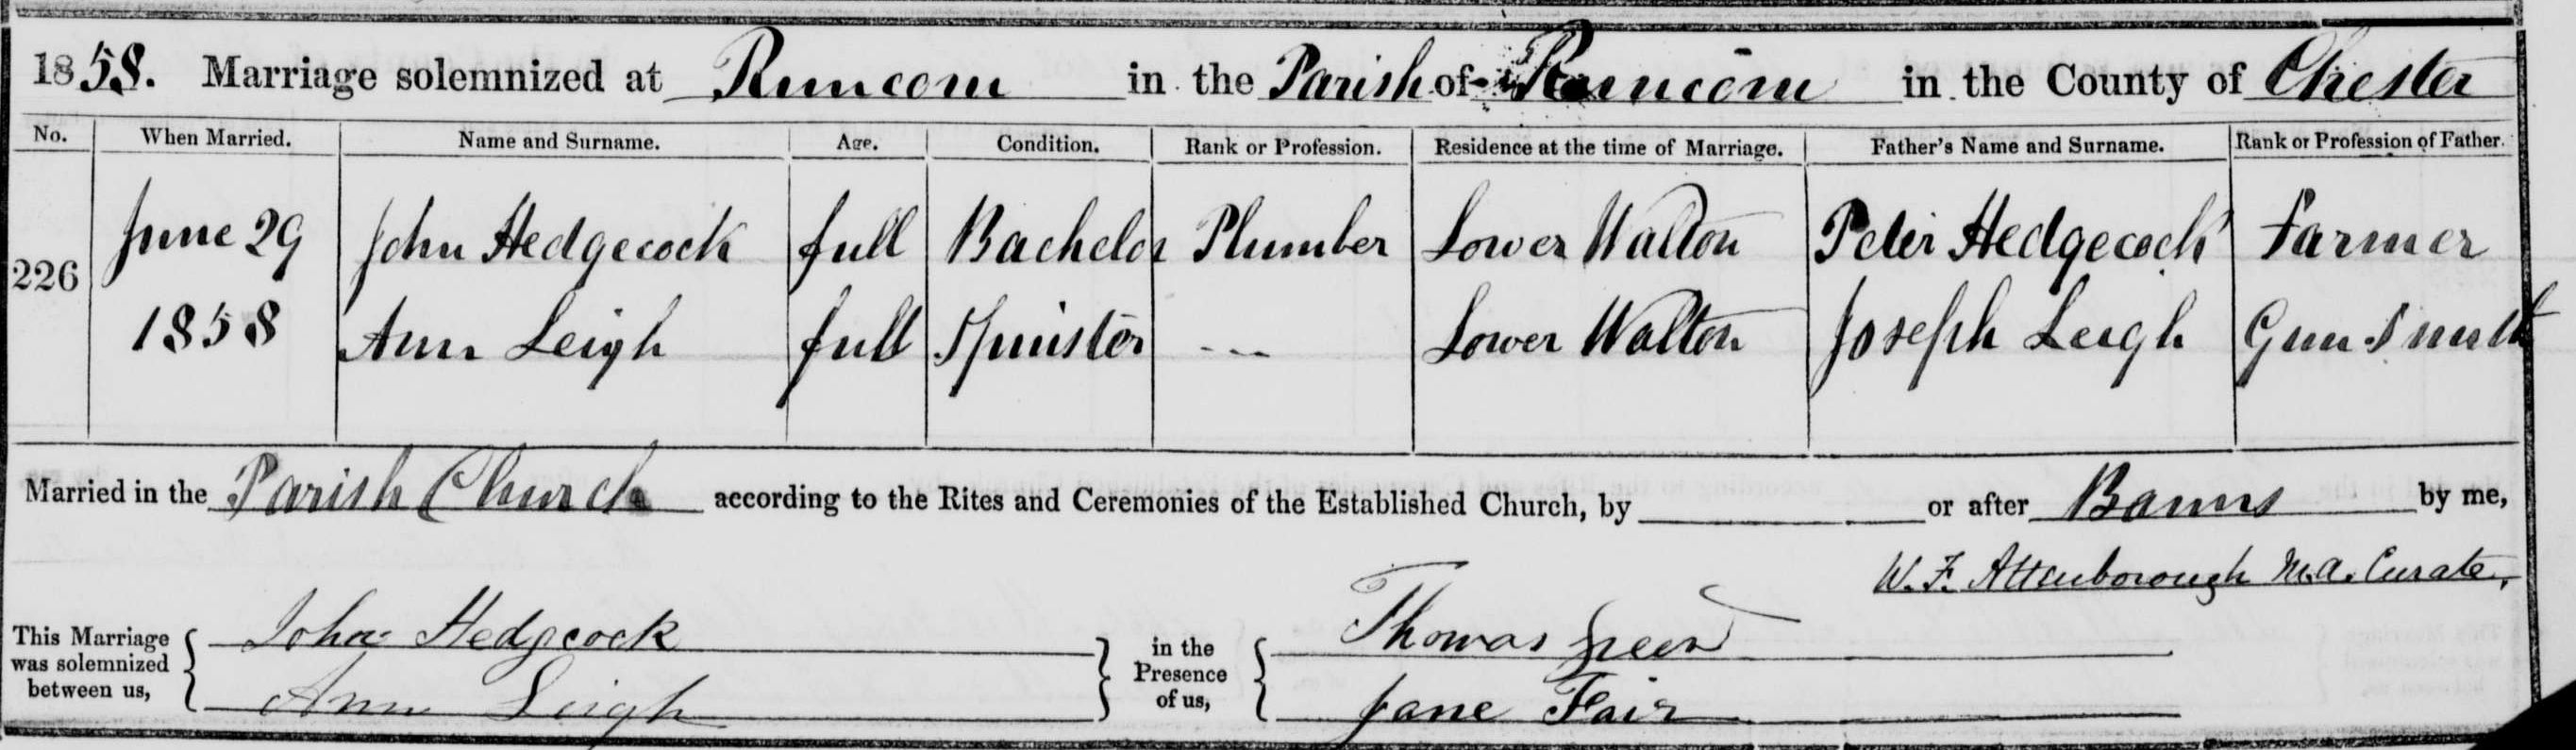 1858. Marriage solemnized at Runcorn in the Parish of Runcorn in the County of Chester
No. When Married. Name and Surname. Age. Condition. Rank or Profession. Residence at the time of Marriage. Father's Name and Surname. Rank or Profession of Father.
226 June 29 John Hedgecock full Bachelor Plumber Lower Walton Peter Hedgecock Farmer
1858 Ann Leigh full Spinster --- Lower Walton Joseph Leigh Gun Smith
Married in the Parish Church according to the Rites and Ceremonies of the Established Church, by or after Banns by me,
W. F. Attenborough M.A. Curate,
This Marriage was solemnized between us, John Hedgcock
Ann Leigh
in the Presence of us, Thomas
Jane Fair